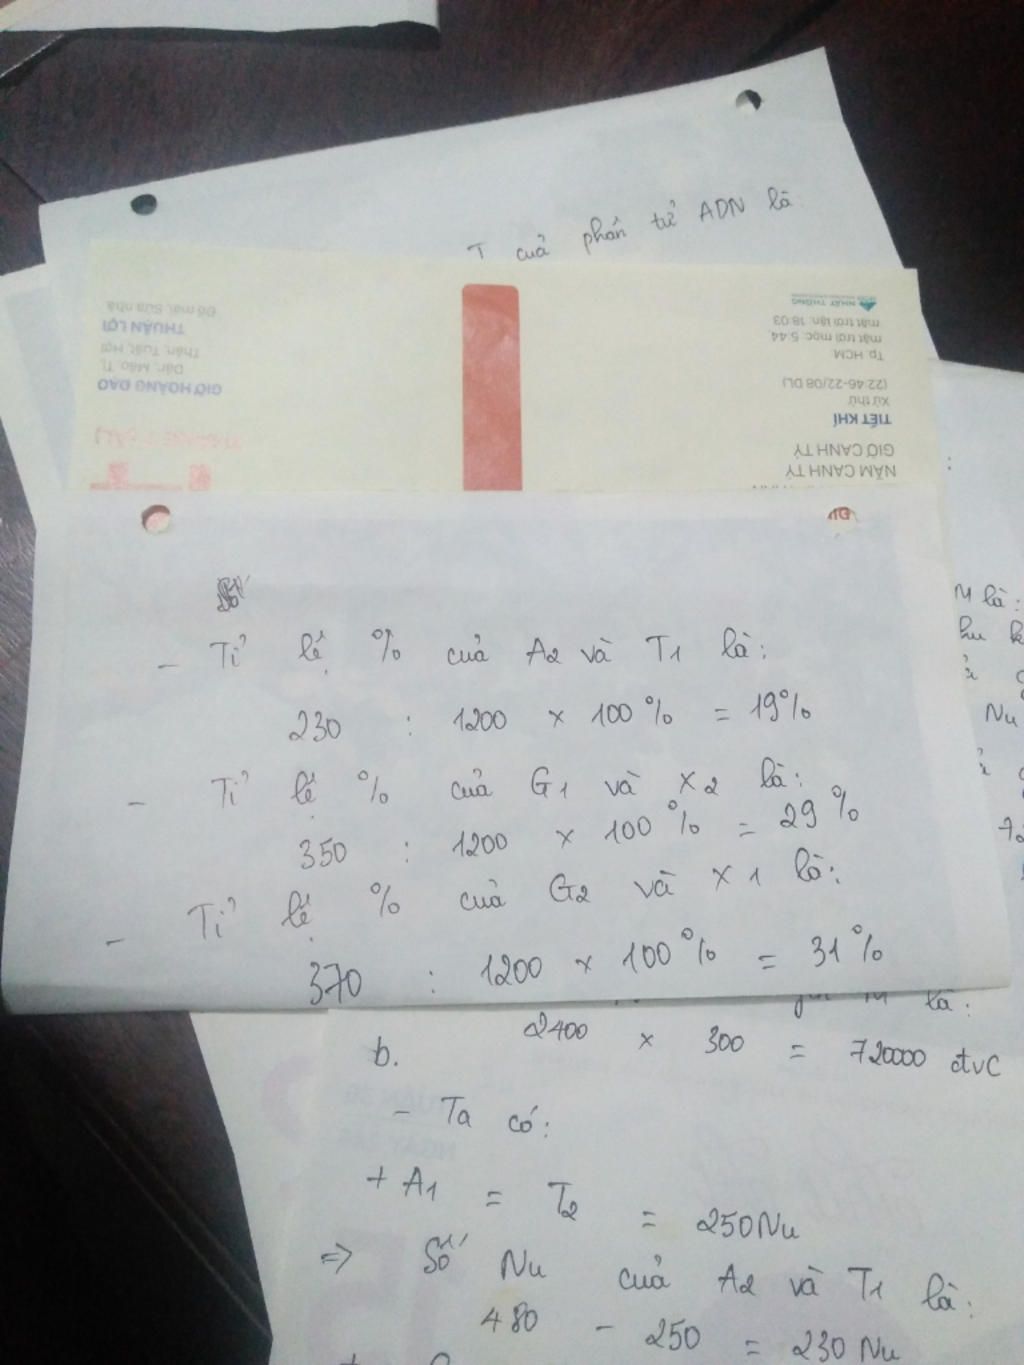 T của phân tử ADN là:
Đổ mái, Sửa nhà
THUẬN LỢI
Thân, Tuất, Hợi
Dần, Mão, Tị,
GIỜ HOÀNG ĐẠO
NHẤT THỐNG
mặt trời lặn: 18:03
mặt trời mọc: 5:44
Tp HCM:
(22:46-22/08 DL)
Xử thử
TIẾT KHÍ
GIỜ CANH TÝ
NĂM CANH TÝ
- Tỉ lệ % của A2 và T1 là:
230 : 1200 × 100% = 19%
- Tỉ lệ % của G1 và X2 là:
350 : 1200 × 100% = 29%
- Tỉ lệ % của G2 và X1 là:
370 : 1200 × 100% = 31%
M là:
Nu
là:
2400 × 300 = 720000 đvC
b.
- Ta có:
+ A1 = T2 = 250Nu
=> Số Nu của A2 và T1 là:
480 - 250 = 230 Nu